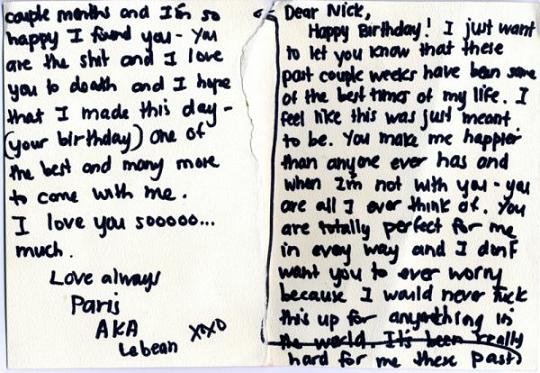 Dear Nick,
Happy Birthday! I just want
to let you know that these
past couple weeks have been some
of the best times of my life. I
feel like this was just meant
to be. You make me happier
than anyone ever has and
when I'm not with you - you
are all I ever think of. You
are totally perfect for me
in every way and I don't
want you to ever worry
because I would never fuck
this up for anything in
the world. It's been really
hard for me these past
couple months and I'm so
happy I found you - You
are the shit and I love
you to death and I hope
that I made this day -
(your birthday) one of
the best and many more
to come with me.
I love you sooooo...
much.
Love always
Paris
AKA
Lebean XXO